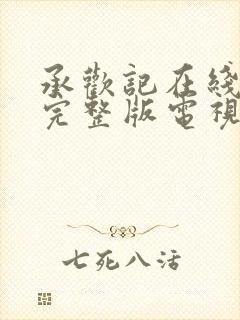 承歡記在綫
完整版電視
七死八活